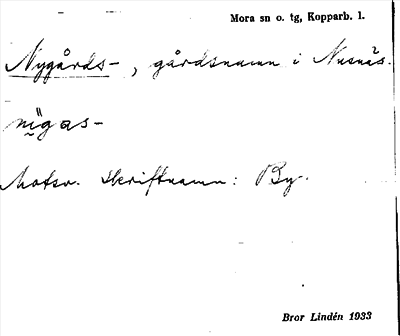 Mora sn o. tg, Kopparb. l.
Nygårds-, gårdsnamn i Nusnäs.
nïgas-
Motsv. skriftnamn: By.
Bror Lindén 1933